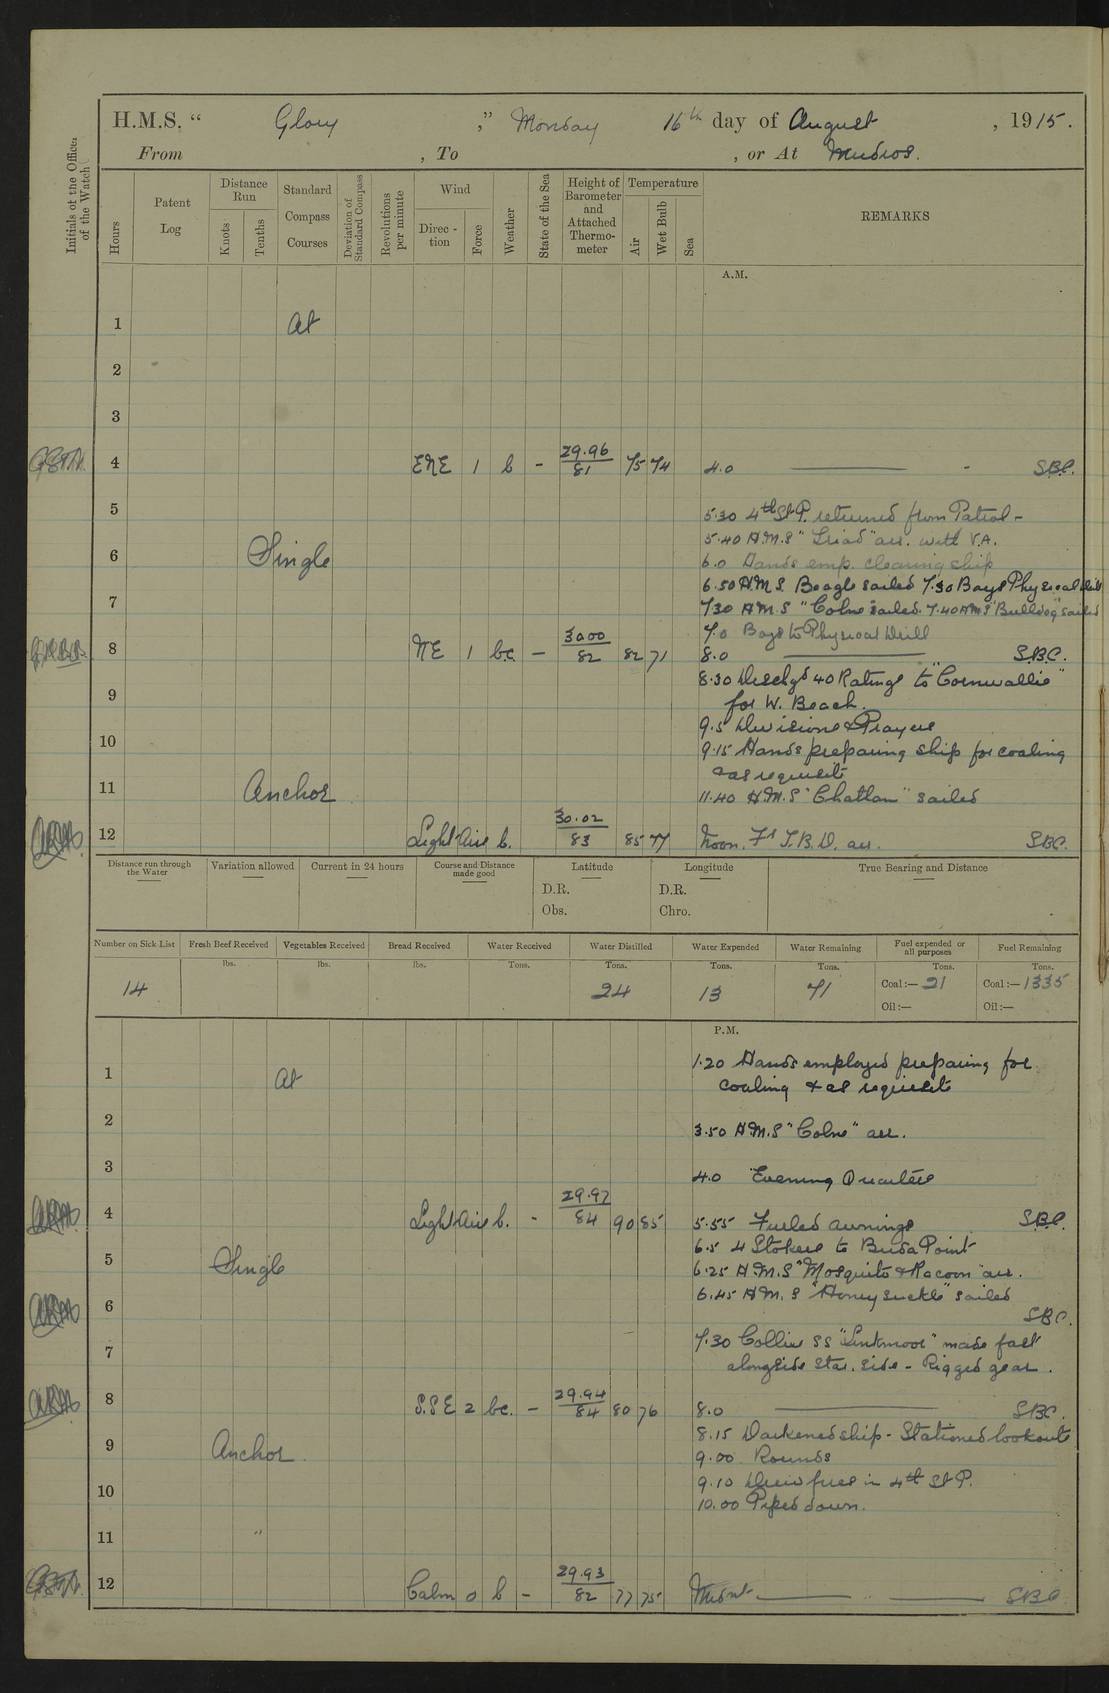 H.M.S. " Glory ," Monday 16th day of August , 1915.
From , To , or At Mudros.
Initials of the Officer of the Watch
Hours
Patent Log
Distance Run
Knots
Tenths
Standard Compass Courses
Deviation of Standard Compass
Revolutions per minute
Wind
Direc-tion
Force
Weather
State of the Sea
Height of Barometer and Attached Thermo-meter
Temperature
Air
Wet Bulb
Sea
REMARKS
A.M.
1 At
2
3
4 ENE 1 b - 29.96/81 75 74 4.0 S.B.C.
5 5.30 4th St P. returned from Patrol -
5.40 H.M.S "Triad" arr. with V.A.
6 Single 6.0 Hands emp. cleaning ship
6.50 H.M.S. Beagle sailed 7.30 Boys Physical drill
7 7.30 H.M.S "Colne" sailed. 7.40 HMS "Bulldog" sailed
7.0 Boys to Physical Drill
8 NE 1 bc - 30.00/82 82 71 8.0 S.B.C.
8.30 Dischgd 40 Ratings to "Cornwallis"
9 for W. Beach.
9.5 Divisions & Prayers
10 9.15 Hands preparing ship for coaling
& as requisite
11 Anchor 11.40 H.M.S "Chatham" sailed
12 Light Airs b. 30.02/83 85 77 Noon. Fr T.B.D. arr. SBC.
Distance run through the Water
Variation allowed
Current in 24 hours
Course and Distance made good
Latitude
D.R.
Obs.
Longitude
D.R.
Chro.
True Bearing and Distance
Number on Sick List
14
Fresh Beef Received
lbs.
Vegetables Received
lbs.
Bread Received
lbs.
Water Received
Tons.
Water Distilled
Tons.
24
Water Expended
Tons.
13
Water Remaining
Tons.
71
Fuel expended or all purposes
Tons.
Coal:— 21
Oil:—
Fuel Remaining
Tons.
Coal:— 1335
Oil:—
P.M.
1 At 1.20 Hands employed preparing for
coaling & as requisite
2 3.50 H.M.S "Colne" arr.
3 4.0 Evening Quarters
4 Light Airs b. - 29.97/84 90 85 5.55 Furled awnings S.B.C.
6.5 4 Stokers to Busa Point
5 Single 6.25 H.M.S "Mosquito & Racoon" arr.
6 6.45 H.M.S "Honeysuckle" sailed
S.B.C.
7 7.30 Collier SS "Linkmoor" made fast
alongside star. side - Rigged gear.
8 S.S E 2 bc. - 29.94/84 80 76 8.0 SBC.
8.15 Darkened ship - Stationed lookouts
9 Anchor. 9.00 Rounds
9.10 Drew fires in 4th St P.
10 10.00 Piped down.
11 "
12 Calm 0 b - 29.93/82 77 75 Midnt SBC